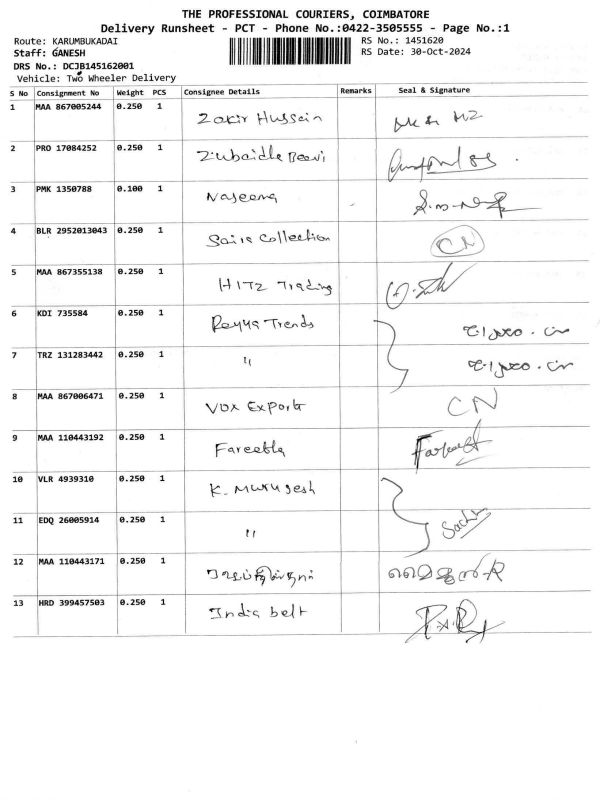 THE PROFESSIONAL COURIERS, COIMBATORE
Delivery Runsheet - PCT - Phone No.:0422-3505555 - Page No.:1
Route: KARUMBUKADAI RS No.: 1451620
Staff: GANESH RS Date: 30-Oct-2024
DRS No.: DCJB145162001
Vehicle: Two Wheeler Delivery
S No Consignment No Weight PCS Consignee Details Remarks Seal & Signature
1 MAA 867005244 0.250 1 Zakir Hussain
2 PRO 17084252 0.250 1 Zubaidha Beevi
3 PMK 1350788 0.100 1 Naseema
4 BLR 2952013043 0.250 1 Saira Collection CN
5 MAA 867355138 0.250 1 HITZ Trading
6 KDI 735584 0.250 1 Reyya Trends
7 TRZ 131283442 0.250 1 "
8 MAA 867006471 0.250 1 VOX Exports CN
9 MAA 110443192 0.250 1 Fareetha
10 VLR 4939310 0.250 1 K. Murugesh
11 EDQ 26005914 0.250 1 "
12 MAA 110443171 0.250 1
13 HRD 399457503 0.250 1 India belt